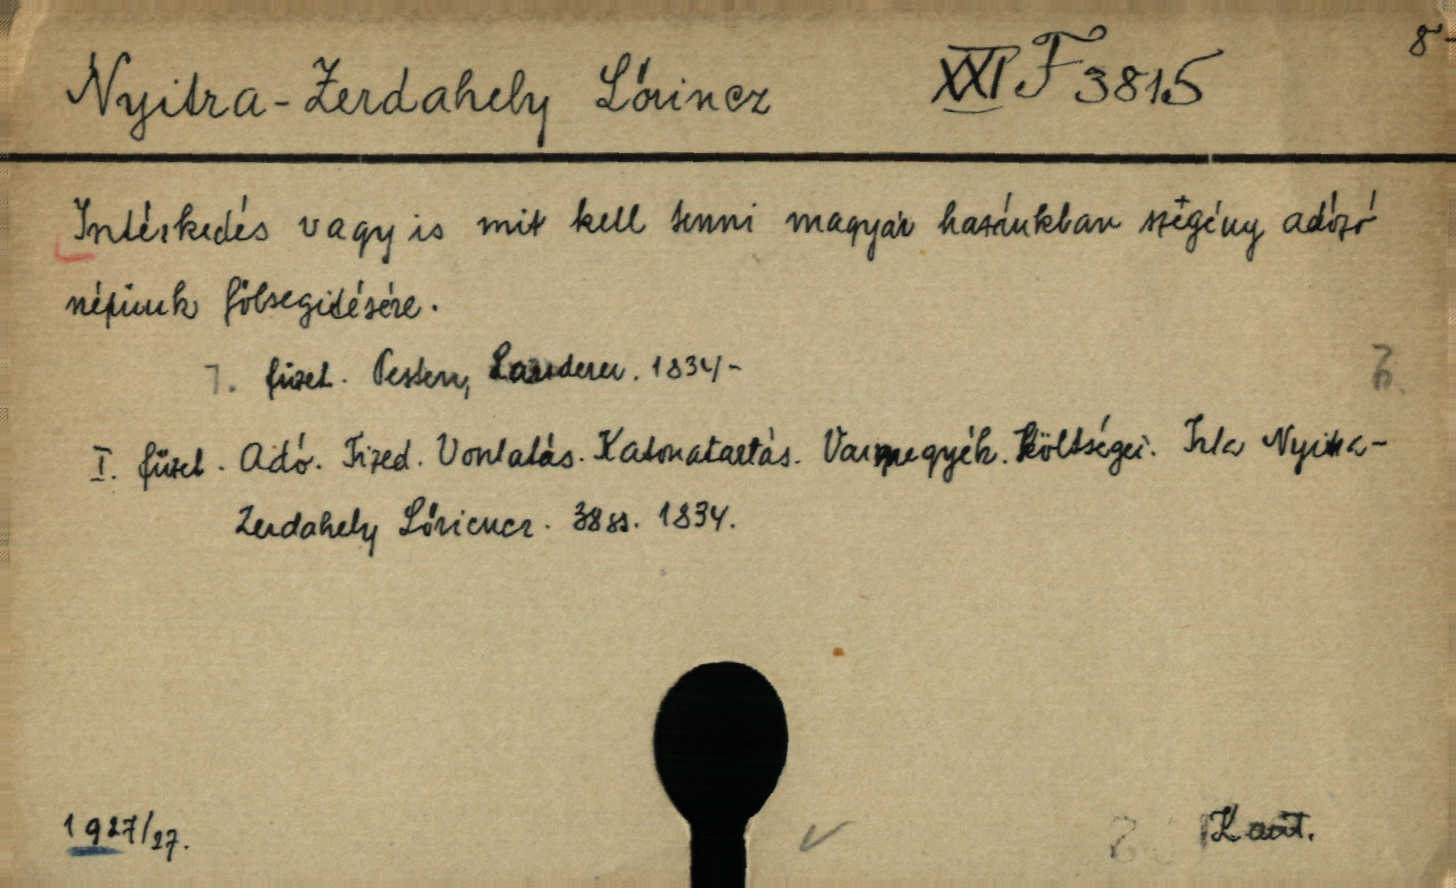 Nyitra-Zerdahely Lőrincz XXI F 3815 8-
Intézkedés vagy is mit kell tenni magyar hazánkban szegény adózó
népünk fölsegitésére.
1. füzet. Pesten, Landerer. 1834-
I. füzet. Adó. Tized. Vontatás. Katonatartás. Varmegyék. Költségei. Irta Nyitra-
Zerdahely Lőriencz. 38 ss. 1834.
1927/27. Kart.